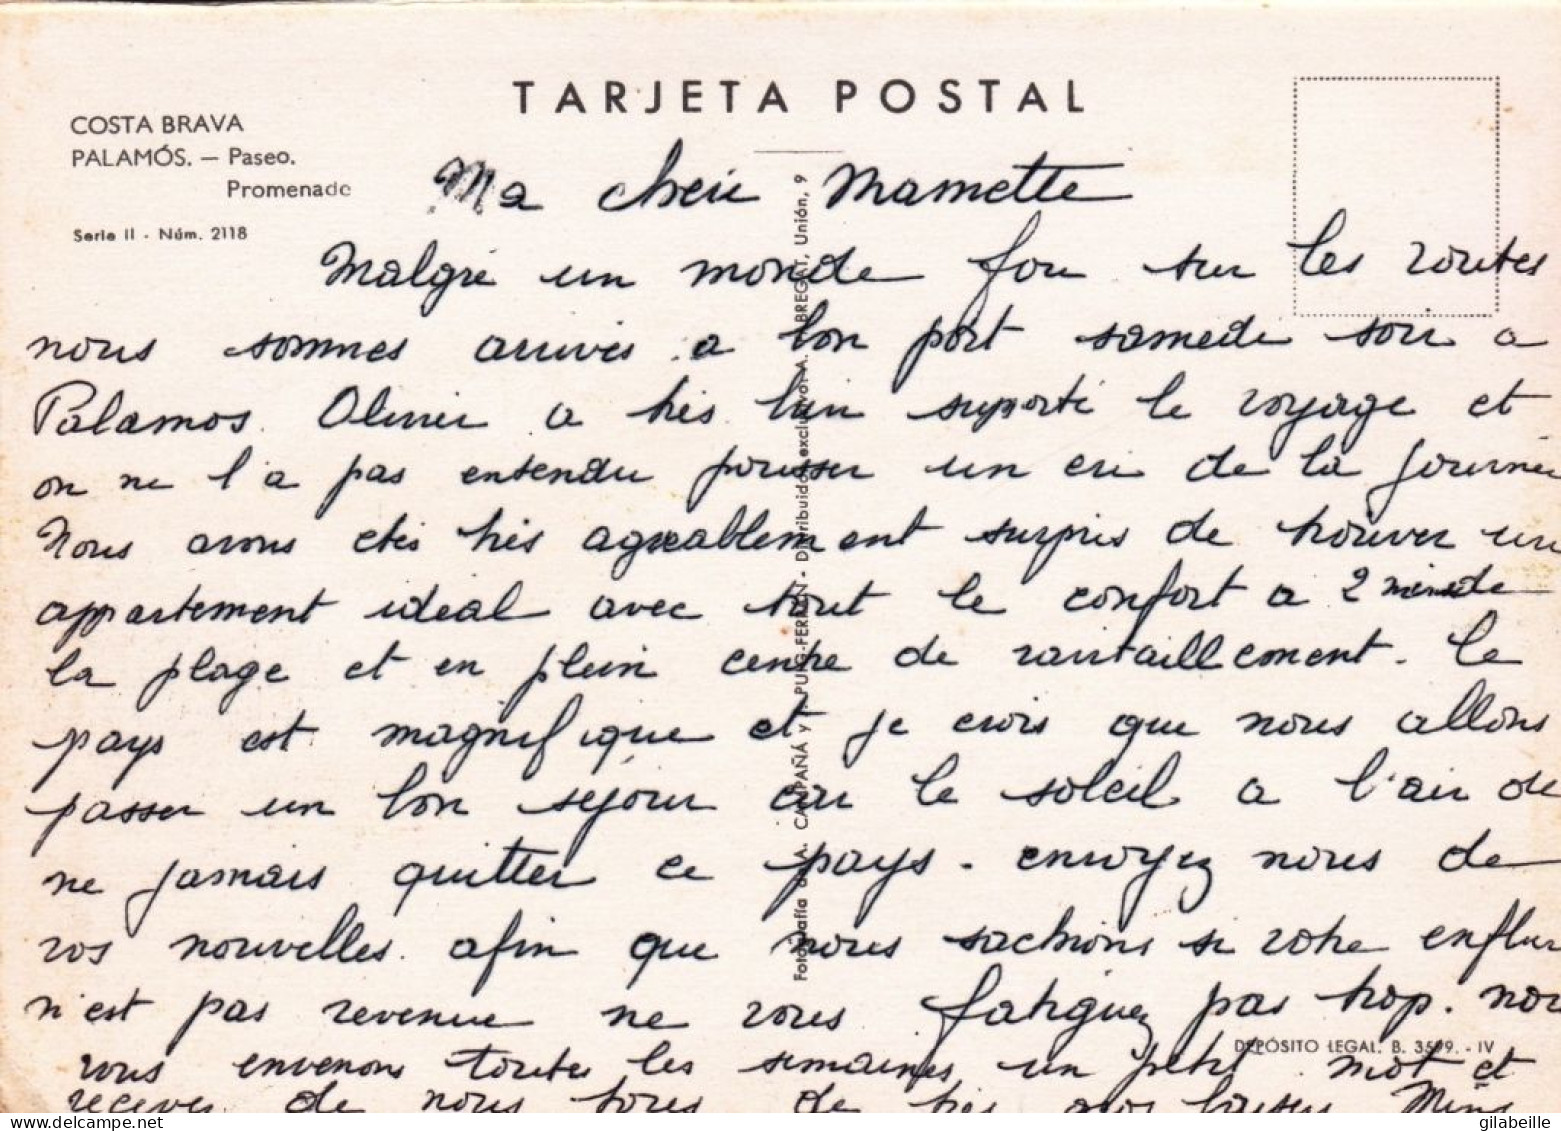 TARJETA POSTAL
COSTA BRAVA
PALAMÓS. — Paseo.
Promenade
Serie II - Núm. 2118
Ma cherie Mamette
Malgré un monde fou sur les routes
nous sommes arrivés a bon port samedi soir a
Palamos. Olivier a très bien suporté le voyage et
on ne l'a pas entendu pousser un cri de la journée
Nous avons étés très agreablement surpris de trouver un
appartement ideal avec tout le confort a 2 min de
la plage et en plein centre de ravitaillement. Le
pays est magnifique et je crois que nous allons
passer un bon séjour car le soleil a l'air de
ne jamais quitter ce pays. envoyez nous de
vos nouvelles. afin que nous sachions si votre
n'est pas revenue ne vous fatiguez pas trop. nous
vous enverrons toutes les semaines un petit mot et
recevez de nous tous de très gros baisers
Fotografía de A. CAMPAÑÁ y J. PUIG-FERRÁN - Distribuidor exclusivo: A. BREGAT, Unión, 9
DEPÓSITO LEGAL. B. 3599. - IV
gilabeille